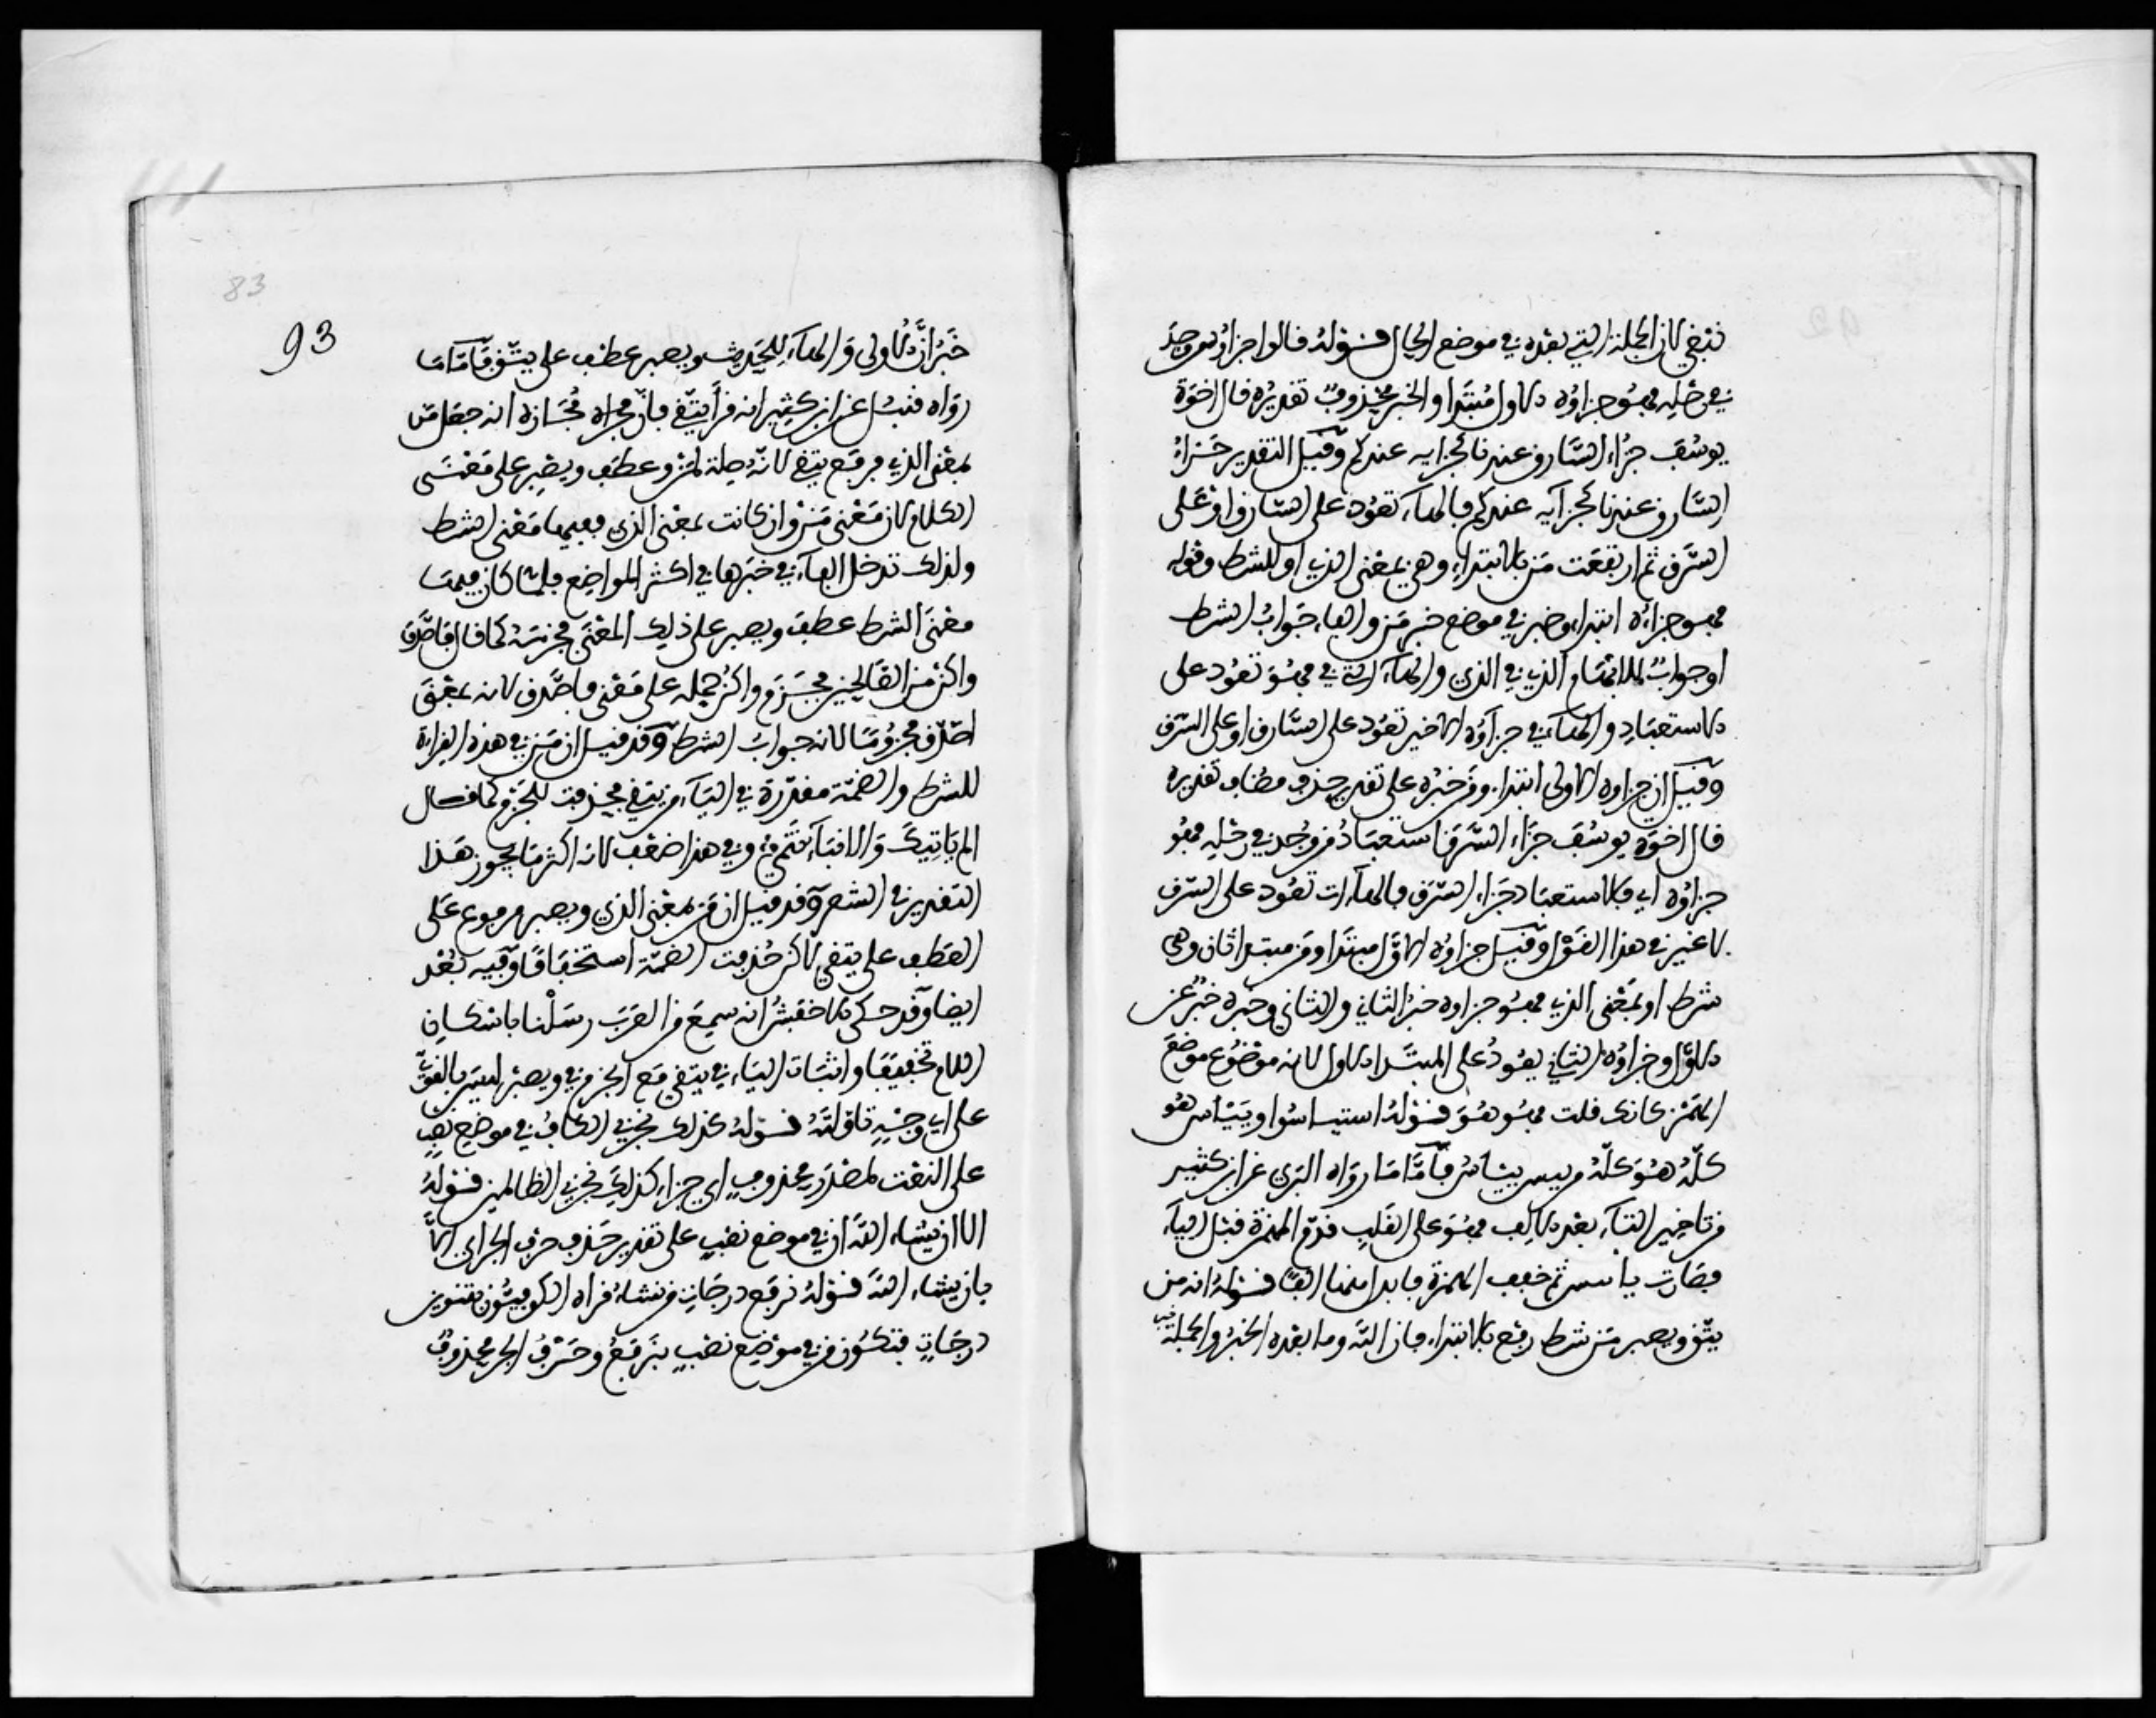 نبغي لان الجملة التي بعده في موضع الحال قوله قالوا جزاؤه من وجد
في رحله فهو جزاؤه الاول مبتدا والخبر محذوف تقديره قال اخوة
يوسف جزاء السارق عندنا كجزايه عندكم وقيل التقدير جزاء
السارق عندنا كجزآيه عندكم فالهآء تعود على السارق او على
السرق ثم ارتفعت من بالابتداء وهي بمعنى الذي او للشرط وقوله
فهو جزاءه ابتداء وخبر في موضع خبر من والفاء جواب الشرط
او جواب للابهام الذي في الذي والهآء التي في فهو تعود على
الاستعباد والهآء في جزآؤه الاخير تعود على السارق او على السرق
وقيل ان جزاوه الاولى ابتداء ومن خبره على تقدير حذف مضاف تقديره
قال اخوة يوسف جزاء السرق استعباد من وجد في رحله فهو
جزاؤه اي فالاستعباد جزاء السرق فالهآءات تعود على السرق
لا غير في هذا القول وقيل جزاؤه الاول مبتدا ومن مبتدا ثان وهي
شرط او بمعنى الذي فهو جزاوه خبر الثاني والثاني وخبره خبر عن
الاول وجزاؤه الثاني يعود على المبتدا الاول لانه موضوع موضع
المضمر كانك قلت فهو هو قوله استيـاسوا وييـاس هو
كله هو كله من ييس ييئاس فأما ما رواه البزي عن ابن كثير
من تاخير اليآء بعد الالف فهو على القلب قدم الهمزة قبل اليآء
فصارت يأيس ثم خفف الهمزة فابدل منها الفا قوله انه من
يتق ويصبر من شرط رفع بالابتداء فان الله وما بعده الخبر والجملة خبر
93
83
خبر ان الاولى والهآء للحديث ويصبر عطف على يتق فأما ما
رواه قنبل عن ابن كثير انه قرأ يتقي فان مجراه مجازه انه جعل من
بمعنى الذي فرفع يتقي لانه صلة لمن وعطف ويصبر على معنى
الكلام لان معنى من وان كانت بمعنى الذي ففيها معنى الشرط
ولذلك تدخل الفآء في خبرها في اكثر المواضع فلما كان فيها
معنى الشرط عطف ويصبر على ذلك المعنى فجزمه كما قال فاصدق
واكن من الصالحين فجزم واكن حمله على معنى فاصدق لانه بمعنى
اصدق مجزوما لانه جواب الشرط وقد قيل ان من في هذه القراءة
للشرط والضمة مقدرة في اليآء من يتقي فحذفت للجزم كما قال
الم ياتيك والانبآء تنمي وفي هذا ضعف لانه اكثر ما يجوز هذا
التقدير في الشعر وقد قيل ان من بمعنى الذي ويصبر مرفوع على
العطف على يتقي لاكن حذفت الضمة استخفافا وفيه بعد
ايضا وقد حكى الاخفش انه سمع من العرب رسلنا باسكان
اللام تخفيفا واثبات الياء في يتقي مع الجزم في ويصبر ليس بالقوي
على اي وجه تاولته قوله كذلك نجزي الكاف في موضع نصب
على النعت لمصدر محذوف اي جزاء كذلك نجزي الظالمين قوله
الا ان يشاء الله ان في موضع نصب على تقدير حذف حرف الجر اي الا
بان يشاء الله قوله نرفع درجات من نشاء قراه الكوفيون بتنوين
درجات فتكون من في موضع نصب بنرفع وحرف الجر محذوف